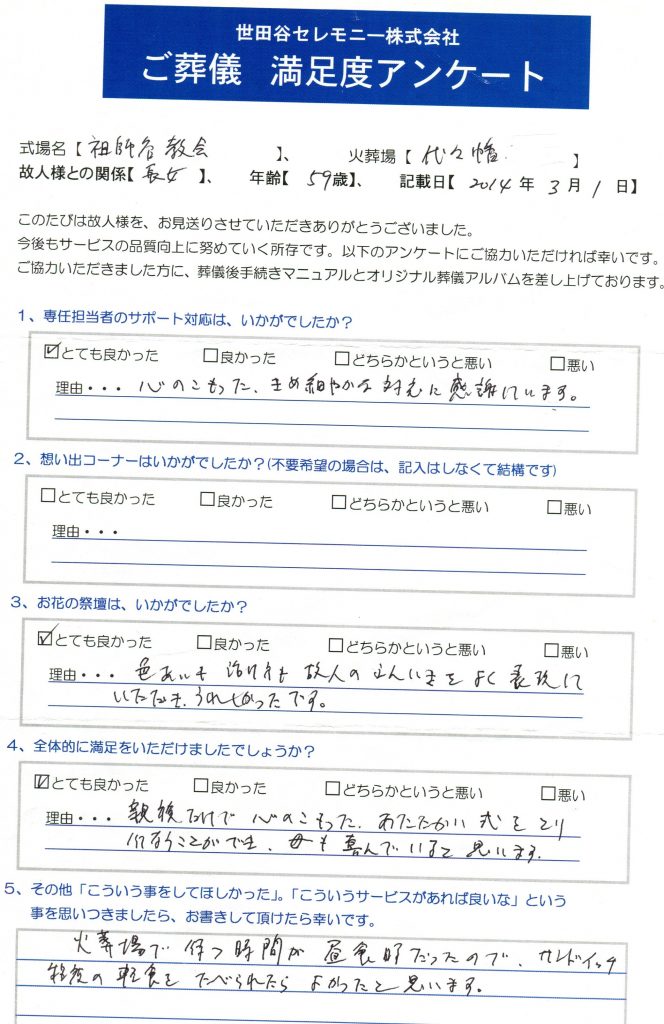 世田谷セレモニー株式会社
ご葬儀 満足度アンケート
式場名【 祖師谷教会 】、 火葬場【 代々幡 】
故人様との関係【 長女 】、 年齢【 59歳】、 記載日【 2014 年 3 月 1 日】
このたびは故人様を、お見送りさせていただきありがとうございました。
今後もサービスの品質向上に努めていく所存です。以下のアンケートにご協力いただければ幸いです。
ご協力いただきました方に、葬儀後手続きマニュアルとオリジナル葬儀アルバムを差し上げております。
1、専任担当者のサポート対応は、いかがでしたか？
☑とても良かった □良かった □どちらかというと悪い □悪い
理由・・・ 心のこもった、きめ細やかな対応に感謝しています。
2、想い出コーナーはいかがでしたか？(不要希望の場合は、記入はしなくて結構です)
□とても良かった □良かった □どちらかというと悪い □悪い
理由・・・
3、お花の祭壇は、いかがでしたか？
☑とても良かった □良かった □どちらかというと悪い □悪い
理由・・・ 色あいも 飾り方も 故人のふんいきをよく表現して
いただき、うれしかったです。
4、全体的に満足をいただけましたでしょうか？
☑とても良かった □良かった □どちらかというと悪い □悪い
理由・・・ 親族だけで心のこもった、あたたかい式をとり
行なうことができ、母も喜んでいると思います。
5、その他「こういう事をしてほしかった」。「こういうサービスがあれば良いな」という
事を思いつきましたら、お書きして頂けたら幸いです。
火葬場で待つ時間が昼食時だったので、サンドイッチ
程度の軽食をたべられたらよかったと思います。